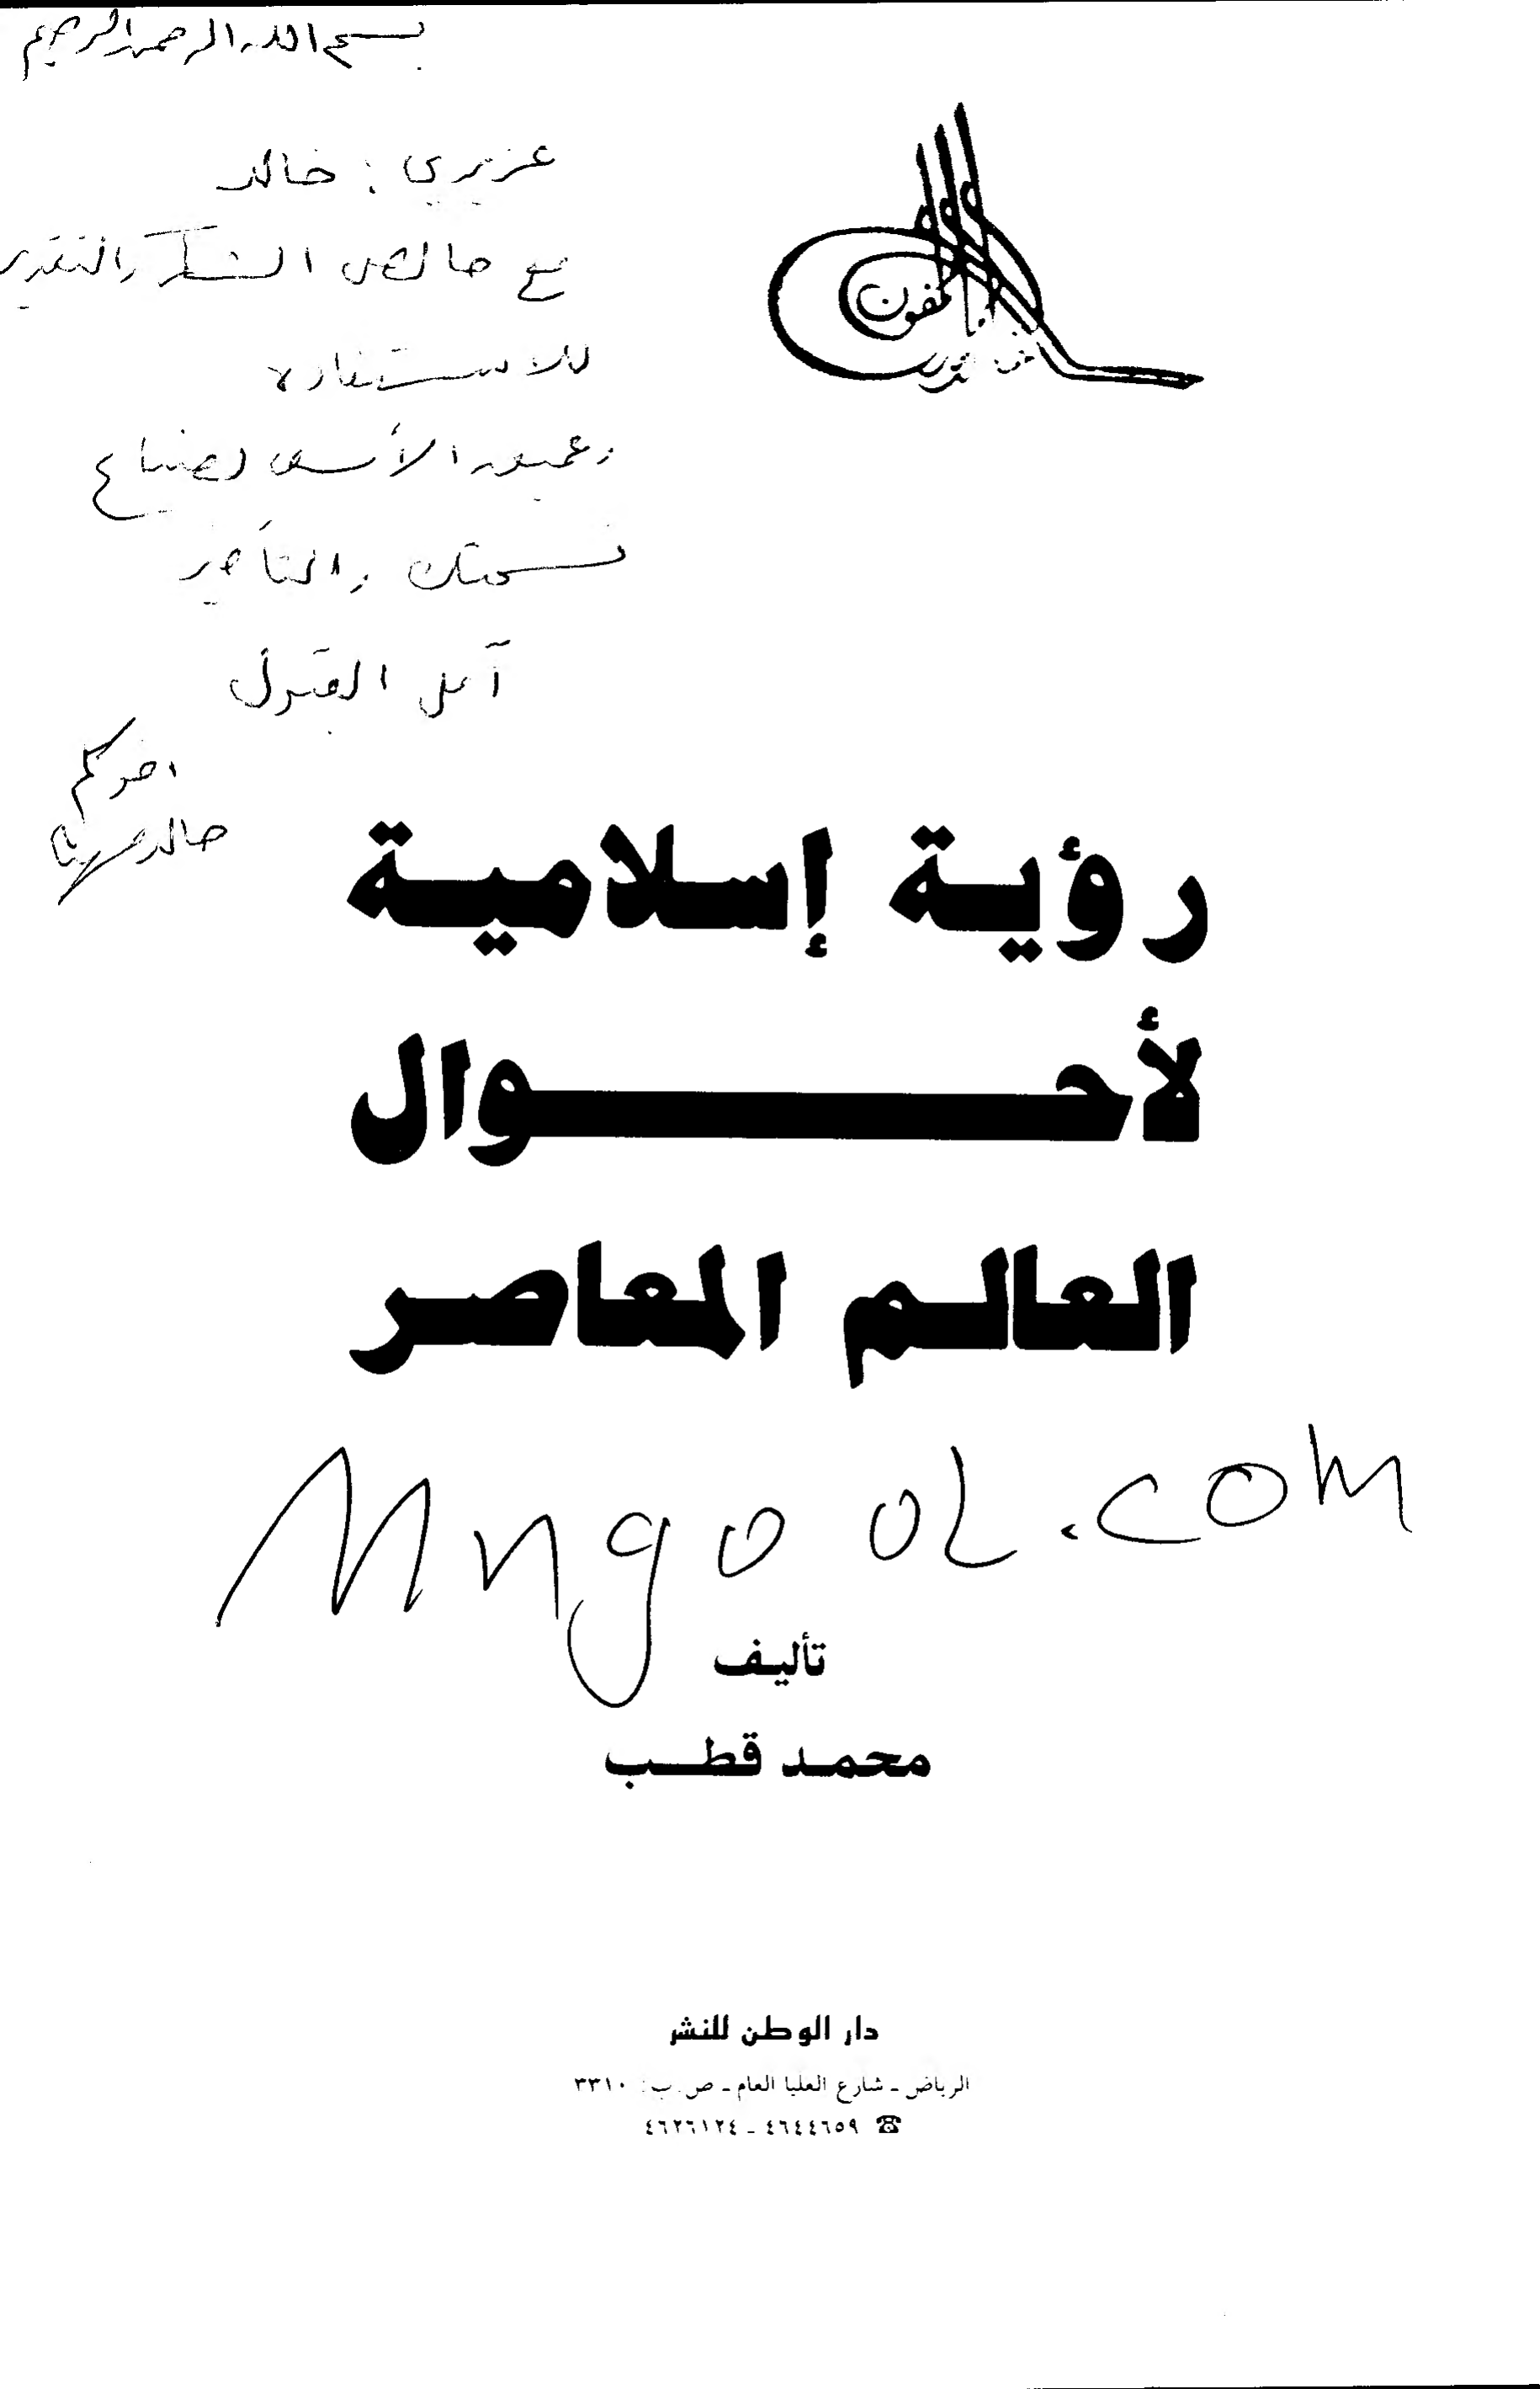 بسم الله الرحمن الرحيم
عزيزي : خالد
مع خالص الشكر والتقدير
للاستفادة
وعميق الأسى لضياع
نسختك والتأخير
آمل القبول
اخوكم
خالد
رؤية إسلامية
لأحوال
العالم المعاصر
Mngool.com
تأليف
محمد قطب
دار الوطن للنشر
الرياض ـ شارع العليا العام ـ ص. ب: ٣٣١٠
☎ ٤٦٤٤٦٥٩ ـ ٤٦٢٦١٢٤